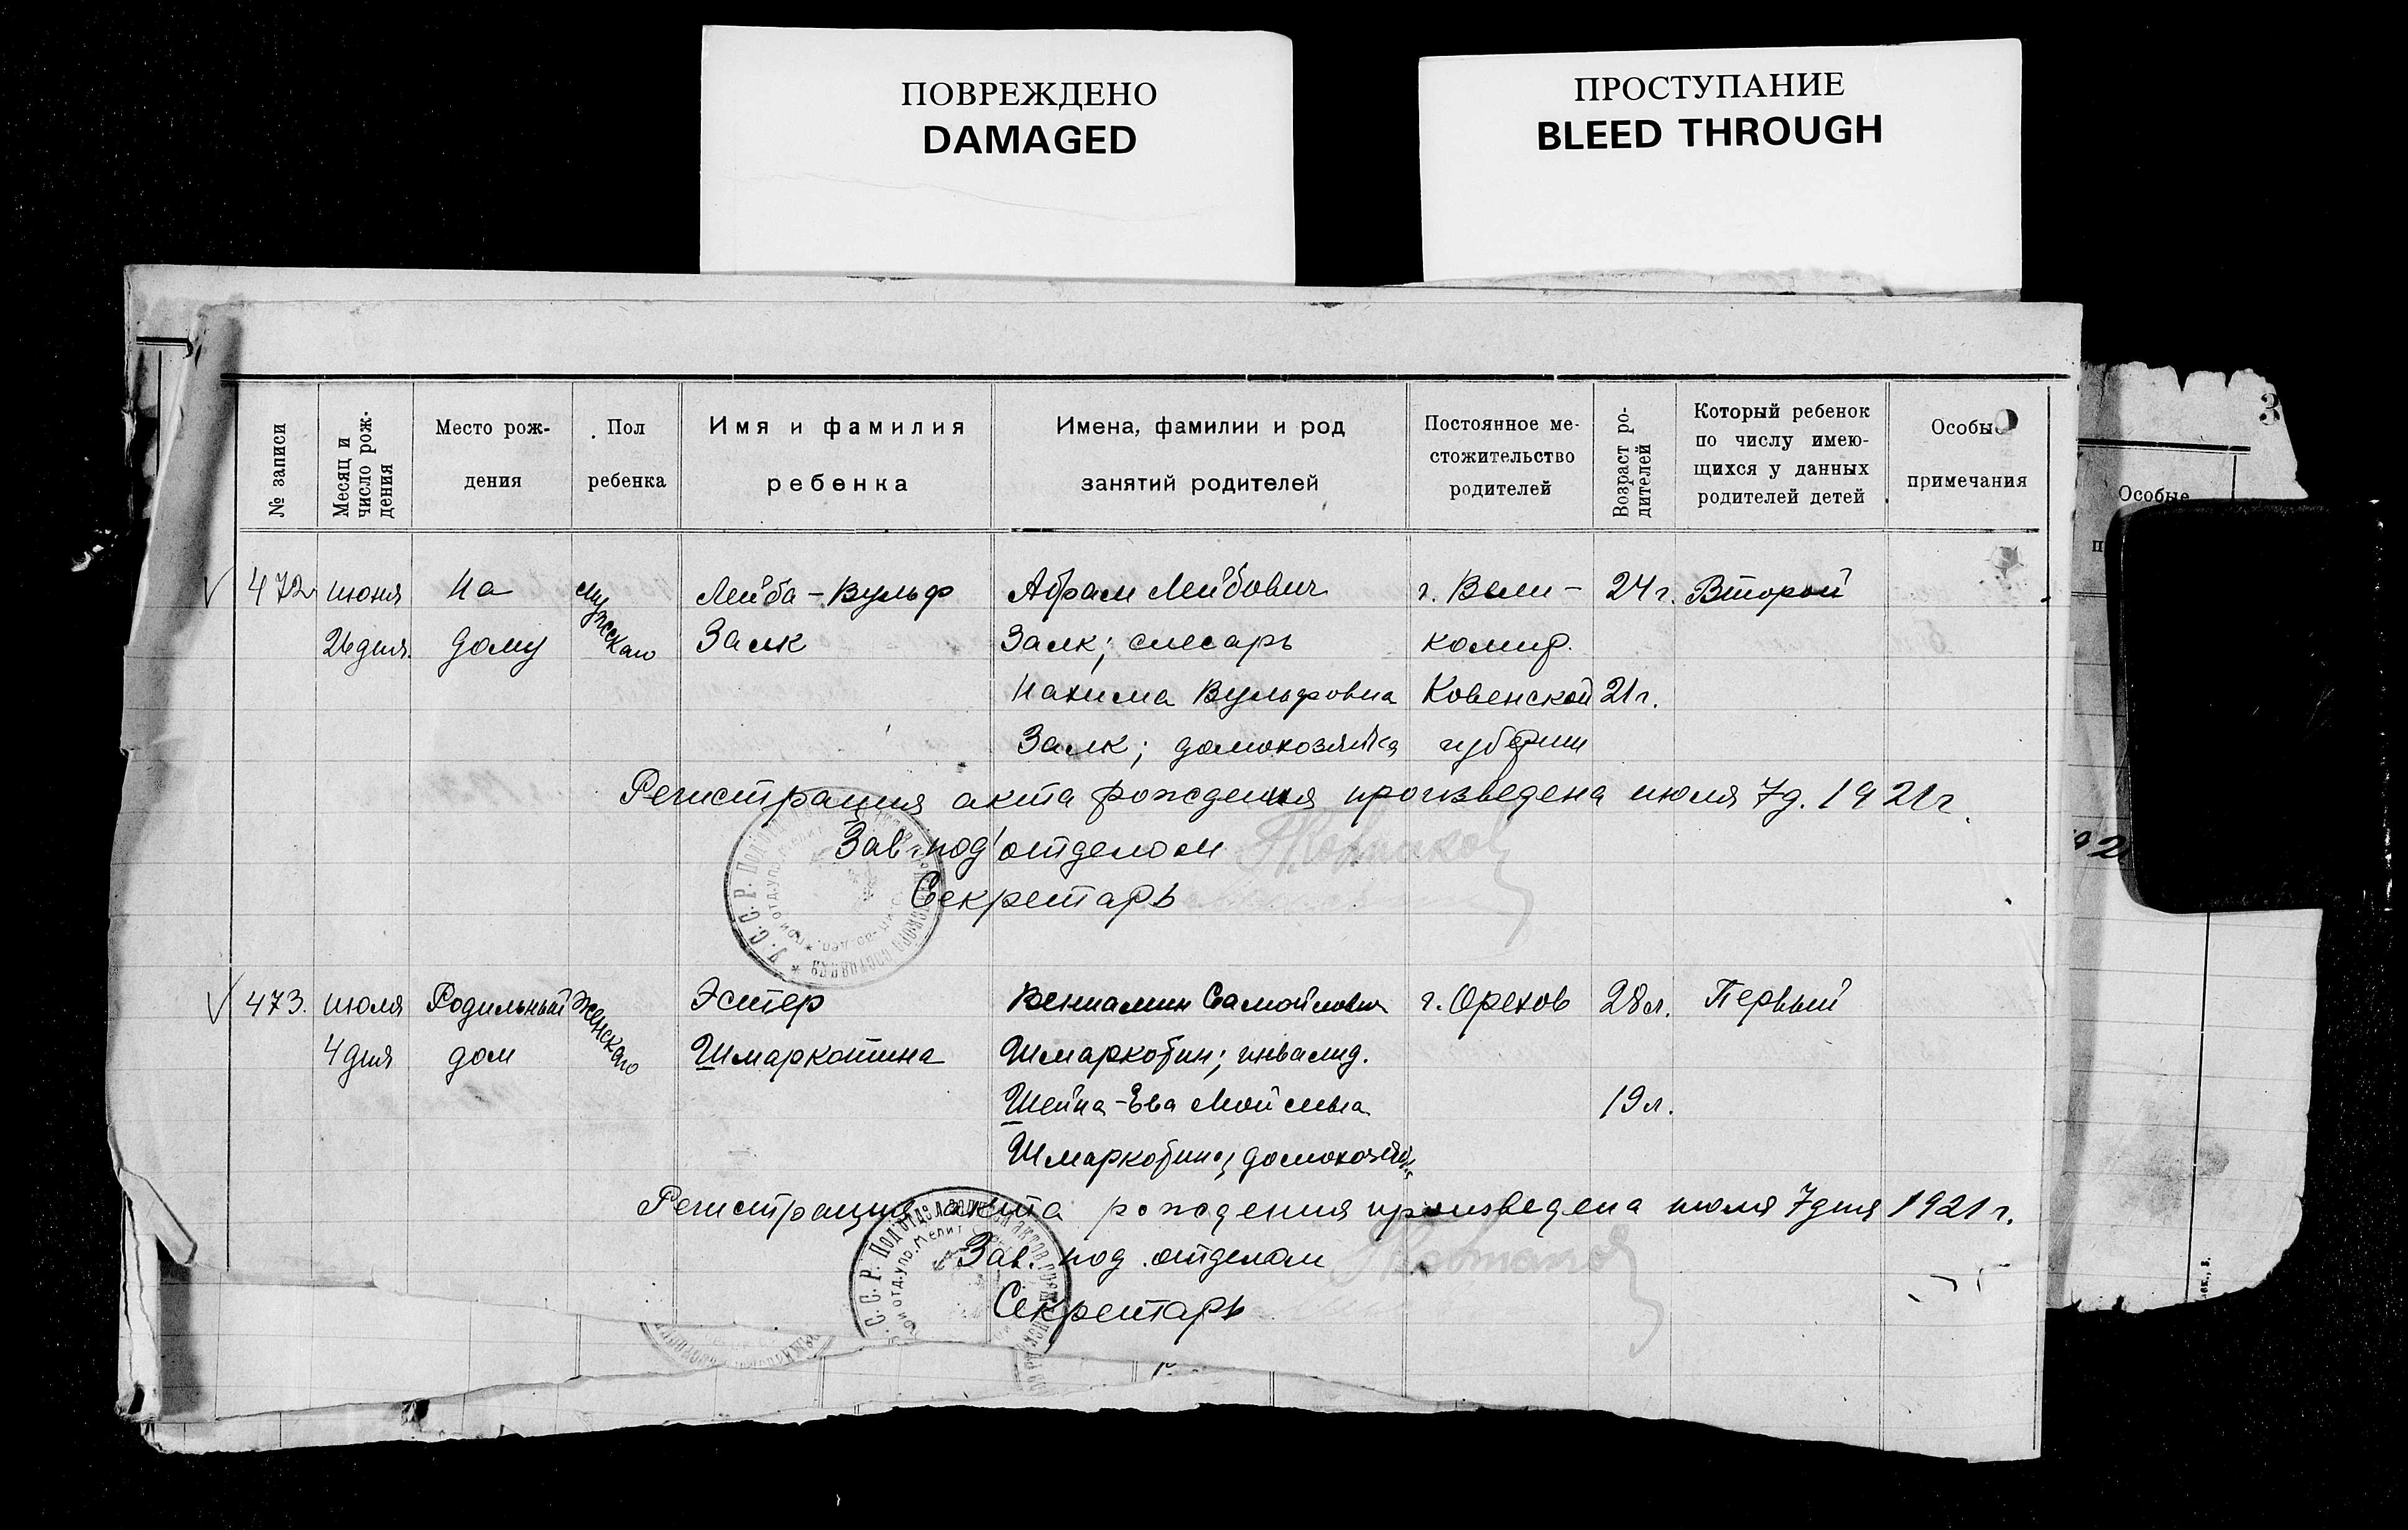 ПОВРЕЖДЕНО
DAMAGED
ПРОСТУПАНИЕ
BLEED THROUGH
3
№ записи
Месяц и число рож-дения
Место рож-дения
Пол ребенка
Имя и фамилия ребенка
Имена, фамилии и род занятий родителей
Постоянное ме-стожительство родителей
Возраст ро-дителей
Который ребенок по числу имею-щихся у данных родителей детей
Особые примечания
Особые
472 июня На мужскаго Лейба-Вульф Абрам Лейбович г. Вели- 24 г. Второй
26 дня. дому Залк Залк; слесарь комир.
Нахима Вульфовна Ковенской 21 г.
Залк; домохозяйка губернии
Регистрация акта рождения произведена июля 7 д. 1921 г.
Зав. под отделом
Секретарь
473. июля Родильный женскаго Эстер Вениамин Самойлович г. Орехов 28 л. Первый
4 дня дом Шмаркотина Шмаркотин; инвалид.
Шейна-Ева 19 л.
Регистрация акта рождения произведена июля 7 дня 1921 г.
Зав. под. отделом
Секретарь